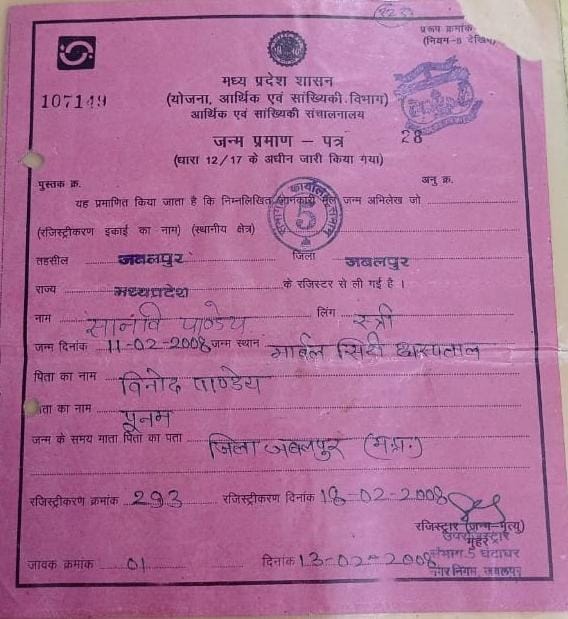 प्ररूप क्रमांक
(नियम-8 देखिए)
मध्य प्रदेश शासन
107149
(योजना, आर्थिक एवं सांख्यिकी विभाग)
आर्थिक एवं सांख्यिकी संचालनालय
जन्म प्रमाण – पत्र
28
(धारा 12/17 के अधीन जारी किया गया)
पुस्तक क्र. अनु क्र.
यह प्रमाणित किया जाता है कि निम्नलिखित जानकारी मूल जन्म अभिलेख जो
5
(रजिस्ट्रीकरण इकाई का नाम) (स्थानीय क्षेत्र)
तहसील जबलपुर जिला जबलपुर
राज्य मध्यप्रदेश के रजिस्टर से ली गई है ।
नाम सानवि पाण्डेय लिंग स्त्री
जन्म दिनांक 11-02-2008 जन्म स्थान मार्बल सिटी अस्पताल
पिता का नाम विनोद पाण्डेय
ाता का नाम पूनम
जन्म के समय माता पिता का पता जिला जबलपुर (म.प्र.)
रजिस्ट्रीकरण क्रमांक 293 रजिस्ट्रीकरण दिनांक 18-02-2008
रजिस्ट्रार (जन्म-मृत्यु)
उपरजिस्ट्रार
मुहर
जावक क्रमांक 01 दिनांक 13-02-2008
संभाग.5 घंटाघर
नगर निगम, जबलपुर